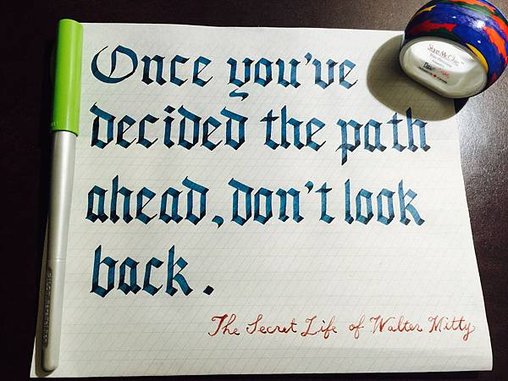 Once you've
decided the path
ahead, don't look
back.
The Secret Life of Walter Mitty